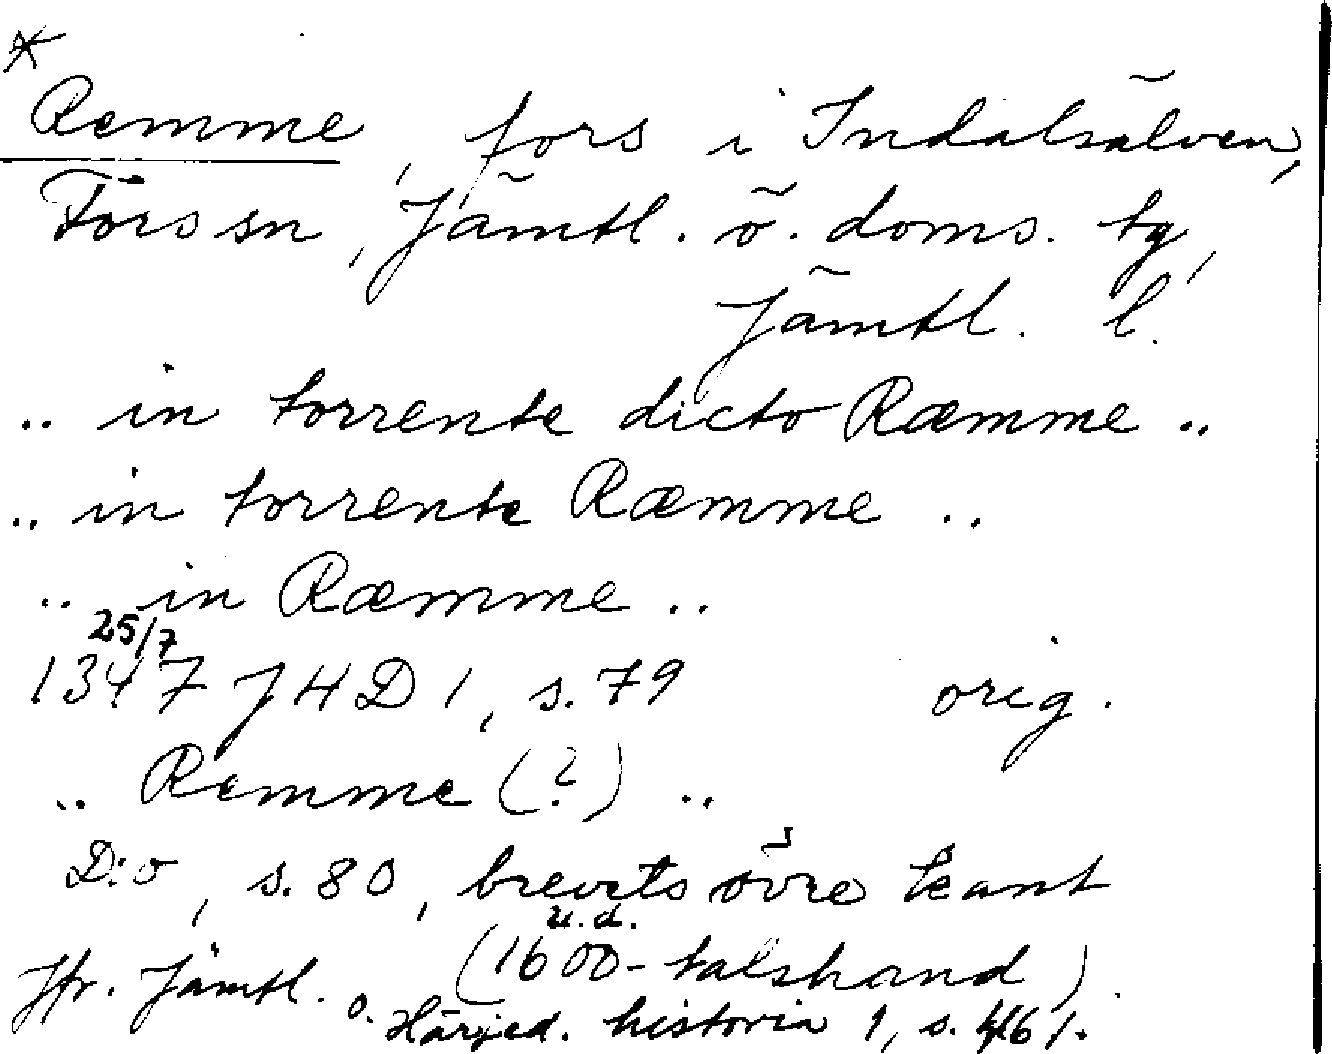 *
Remme, fors i Indalsälven,
Fors sn, Jämtl. ö. doms. tg,
Jämtl. l.
.. in torrente dicto Ræmme ..
.. in torrente Ræmme ..
.. in Ræmme ..
25/7
1347 JHD 1, s. 79 orig.
.. Remme (?) ..
D:o, s. 80, brevets övre kant
u.d.
(1600-talshand).
Jfr. Jämtl. o. Härjed. historia 1, s. 461.